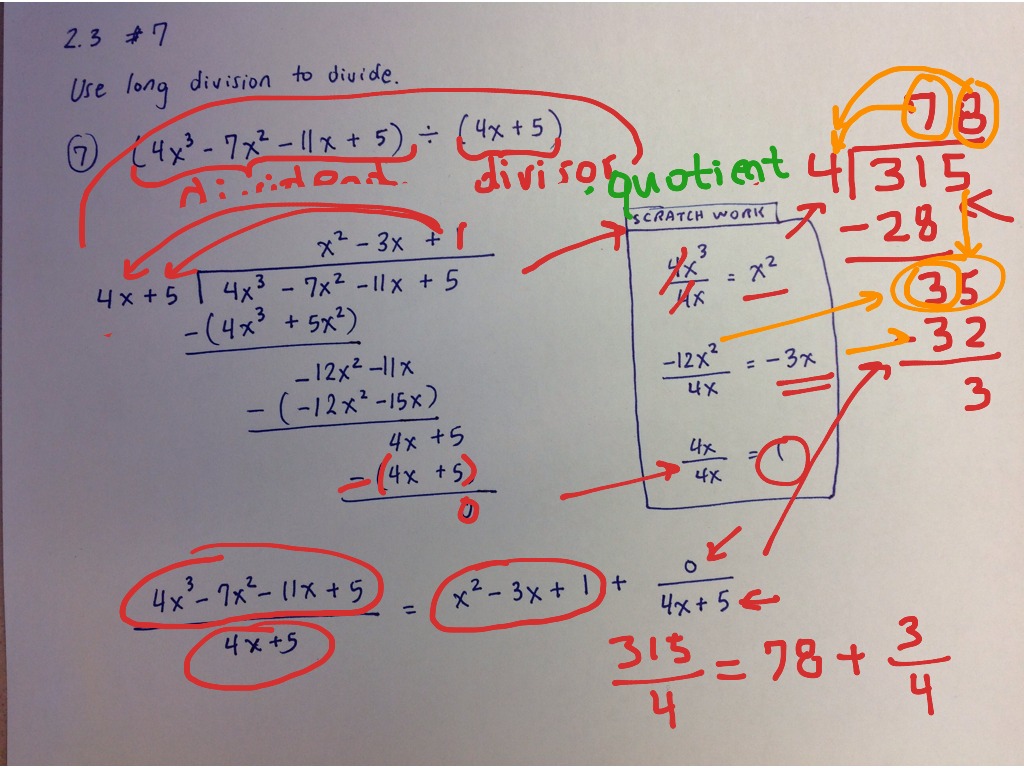 2.3 #7
Use long division to divide.
⑦ (4x³ - 7x² - 11x + 5) ÷ (4x + 5)
dividend. divisor. quotient
x² - 3x + 1
4x + 5 ) 4x³ - 7x² - 11x + 5
-(4x³ + 5x²)
-12x² - 11x
- (-12x² - 15x)
4x + 5
- (4x + 5)
0
SCRATCH WORK
4x³/4x = x²
-12x²/4x = -3x
4x/4x = 1
78
4 ) 315
-28
35
-32
3
4x³ - 7x² - 11x + 5 / 4x + 5 = x² - 3x + 1 + 0 / 4x + 5
315/4 = 78 + 3/4